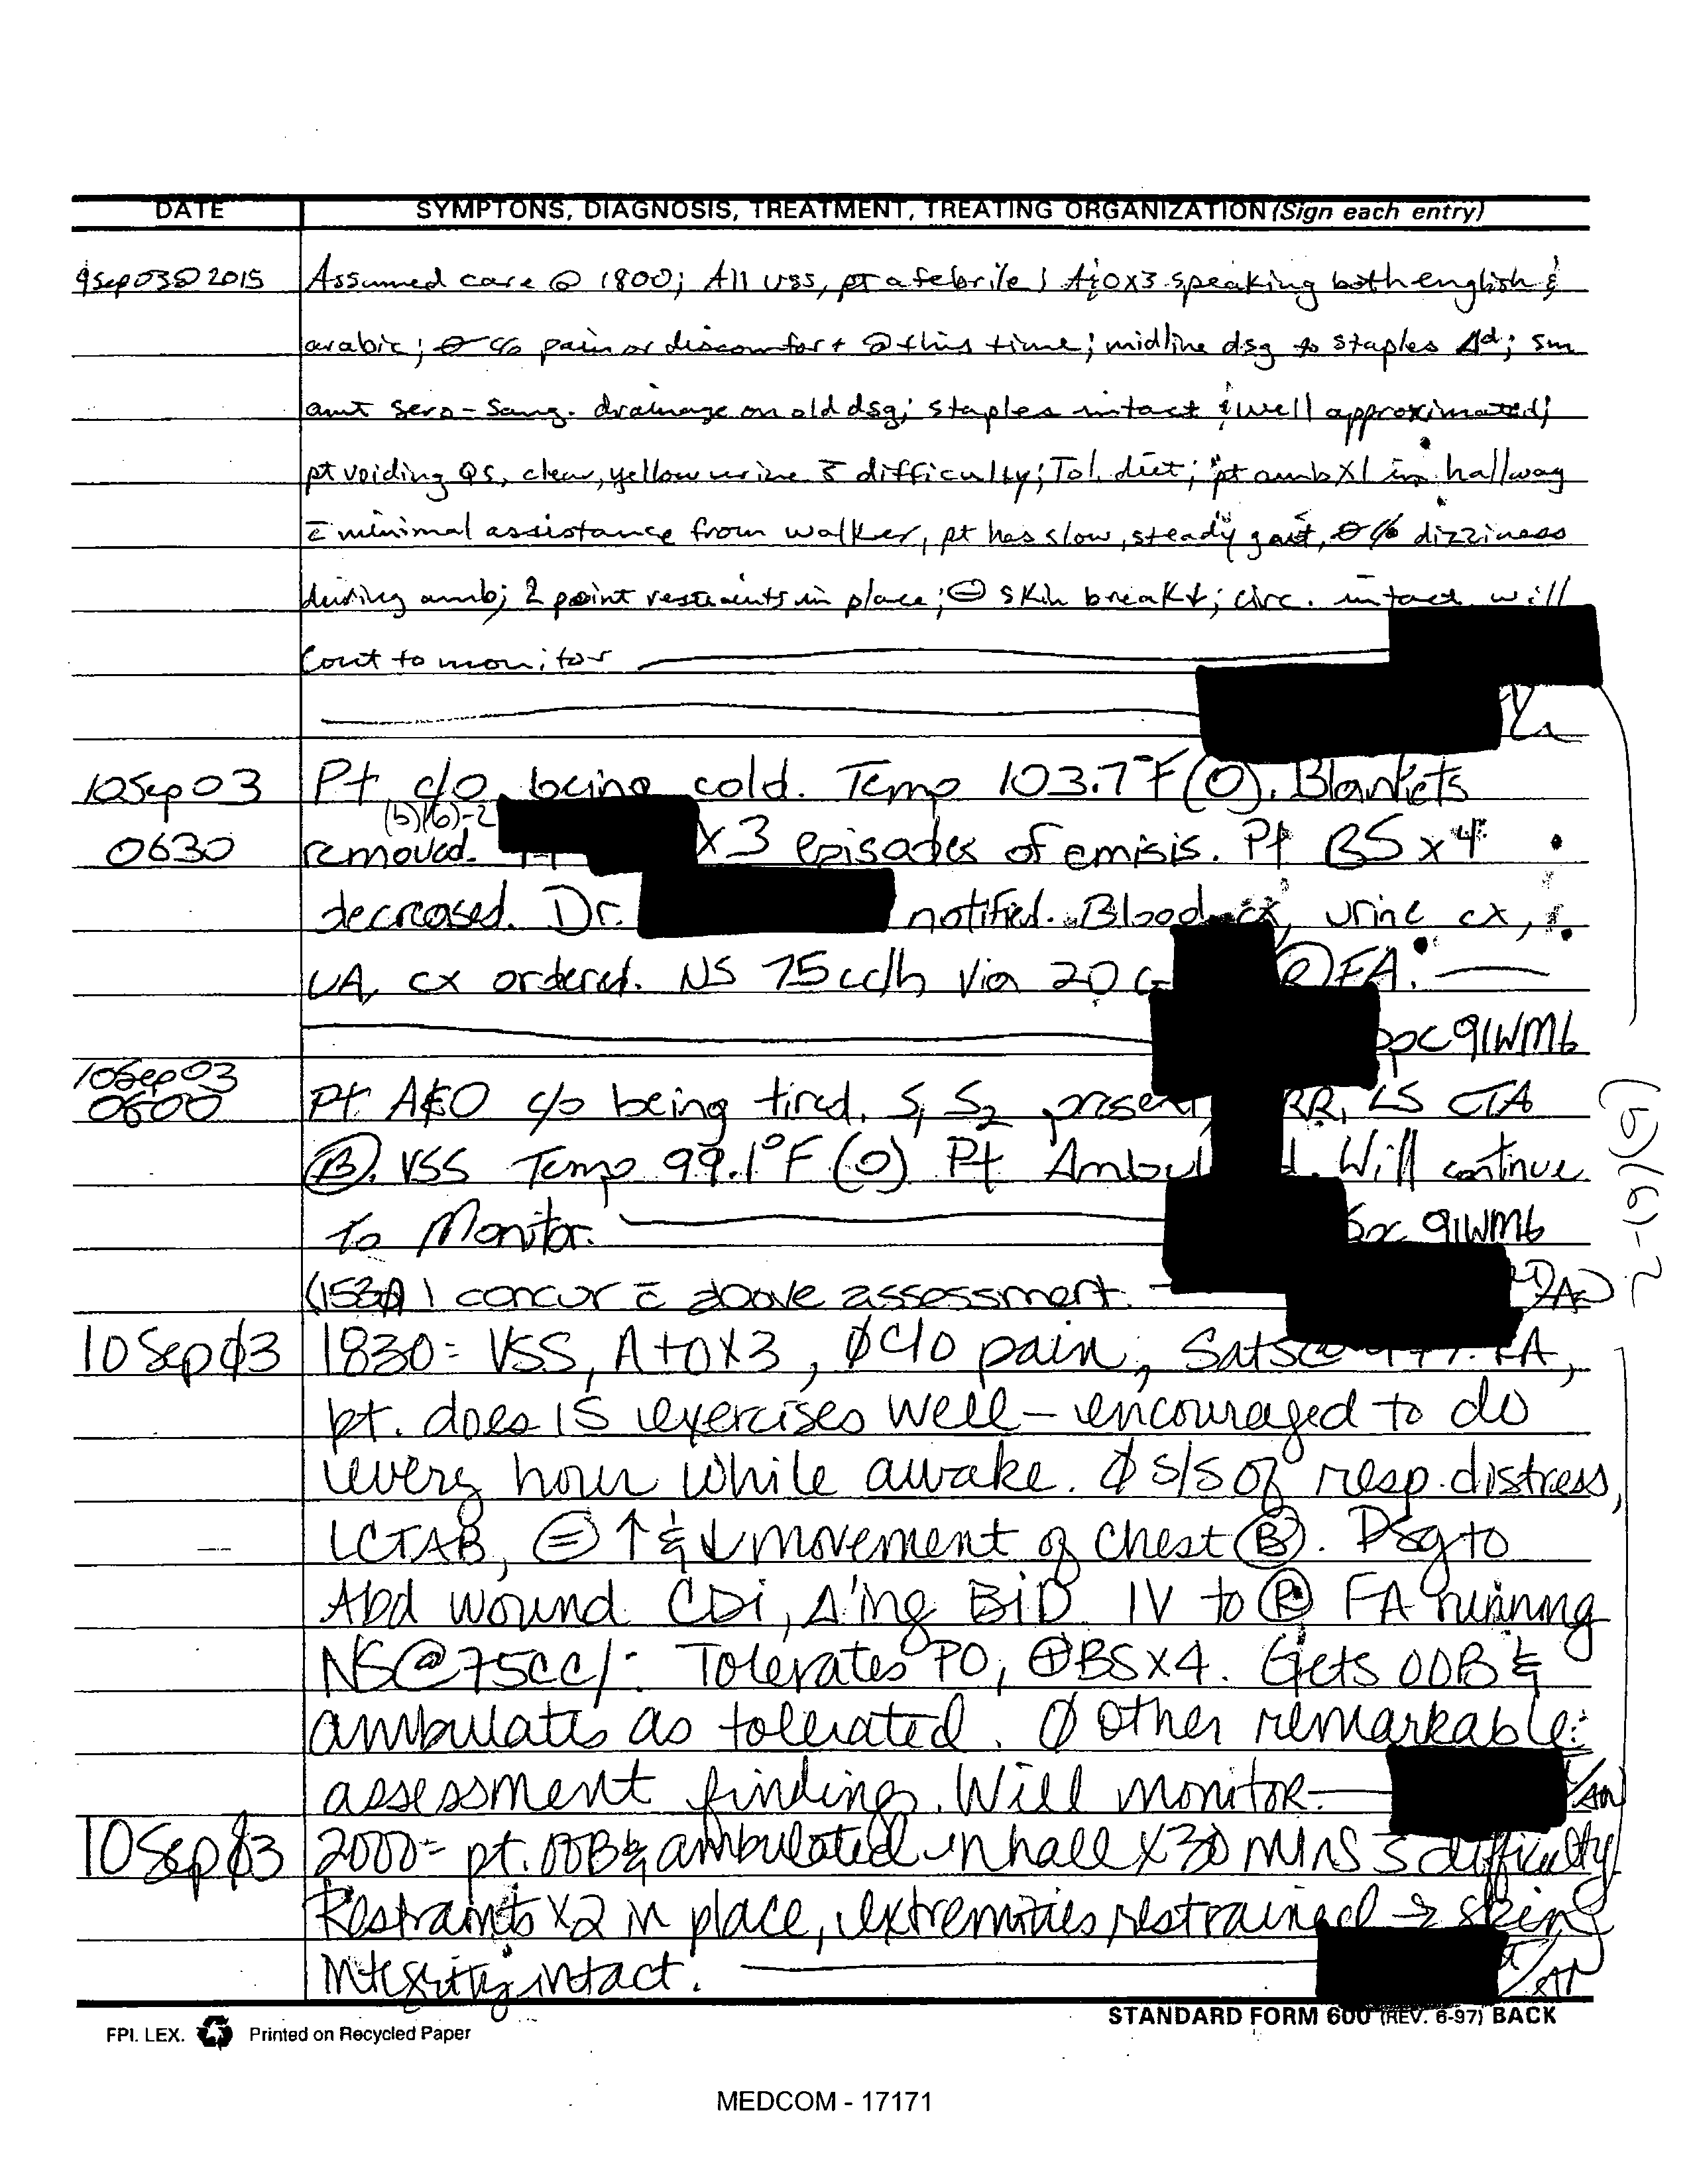 DATE SYMPTONS, DIAGNOSIS, TREATMENT, TREATING ORGANIZATION (Sign each entry)
9Sep03@2015 Assumed care @ 1800; All VSS, pt afebrile; A&OX3 speaking both english &
arabic; ∅ c/o pain or discomfort @ this time; midline dsg to staples Δd; sm
amt sero-sang. drainage on old dsg; staples intact & well approximated;
pt voiding QS, clear, yellow urine s̄ difficulty; Tol. diet; pt amb X1 in hallway
c̄ minimal assistance from walker, pt has slow, steady gait, ∅ c/o dizziness
during amb; 2 point restraints in place; ⊖ skin break↓; circ. intact will
Cont to monitor
10Sep03 Pt c/o being cold. Temp 103.7°F (O). Blankets
(b)(6)-2
0630 removed. X3 episodes of emisis. Pt BS x 4
decreased. Dr. notified. Blood cx, urine cx,
UA, cx ordered. NS 75cc/h via 20 G Ⓡ FA.
spc 91WM6
10Sep03
0600 Pt A&O c/o being tired. S1 S2 present, RR, LS CTA
Ⓑ. VSS Temp 99.1°F (O) Pt Ambul d. Will continue
to Monitor. Spc 91WM6
(b)(6)-2
(1530) I concur c̄ above assessment.
10Sep03 1830= VSS, A+OX3, ∅ C/O pain, Sats@ RA,
pt. does IS exercises well – encouraged to do
every hour while awake. ∅ s/s of resp. distress,
LCTAB, ⊜ ↑ & ↓ movement of chest Ⓑ. Dsg to
Abd wound CDI, Δ'ing BID IV to Ⓡ FA running
NS@75cc/° Tolerates PO, ⊕BSX4. Gets OOB &
ambulates as tolerated. ∅ other remarkable
assessment finding. Will monitor. /AN
10Sep03 2000= pt. OOB & ambulated in hall X30 mins s̄ difficulty
Restraints X2 in place, extremities restrained → skin
integrity intact. /AN
FPI. LEX. Printed on Recycled Paper STANDARD FORM 600 (REV. 6-97) BACK
MEDCOM - 17171